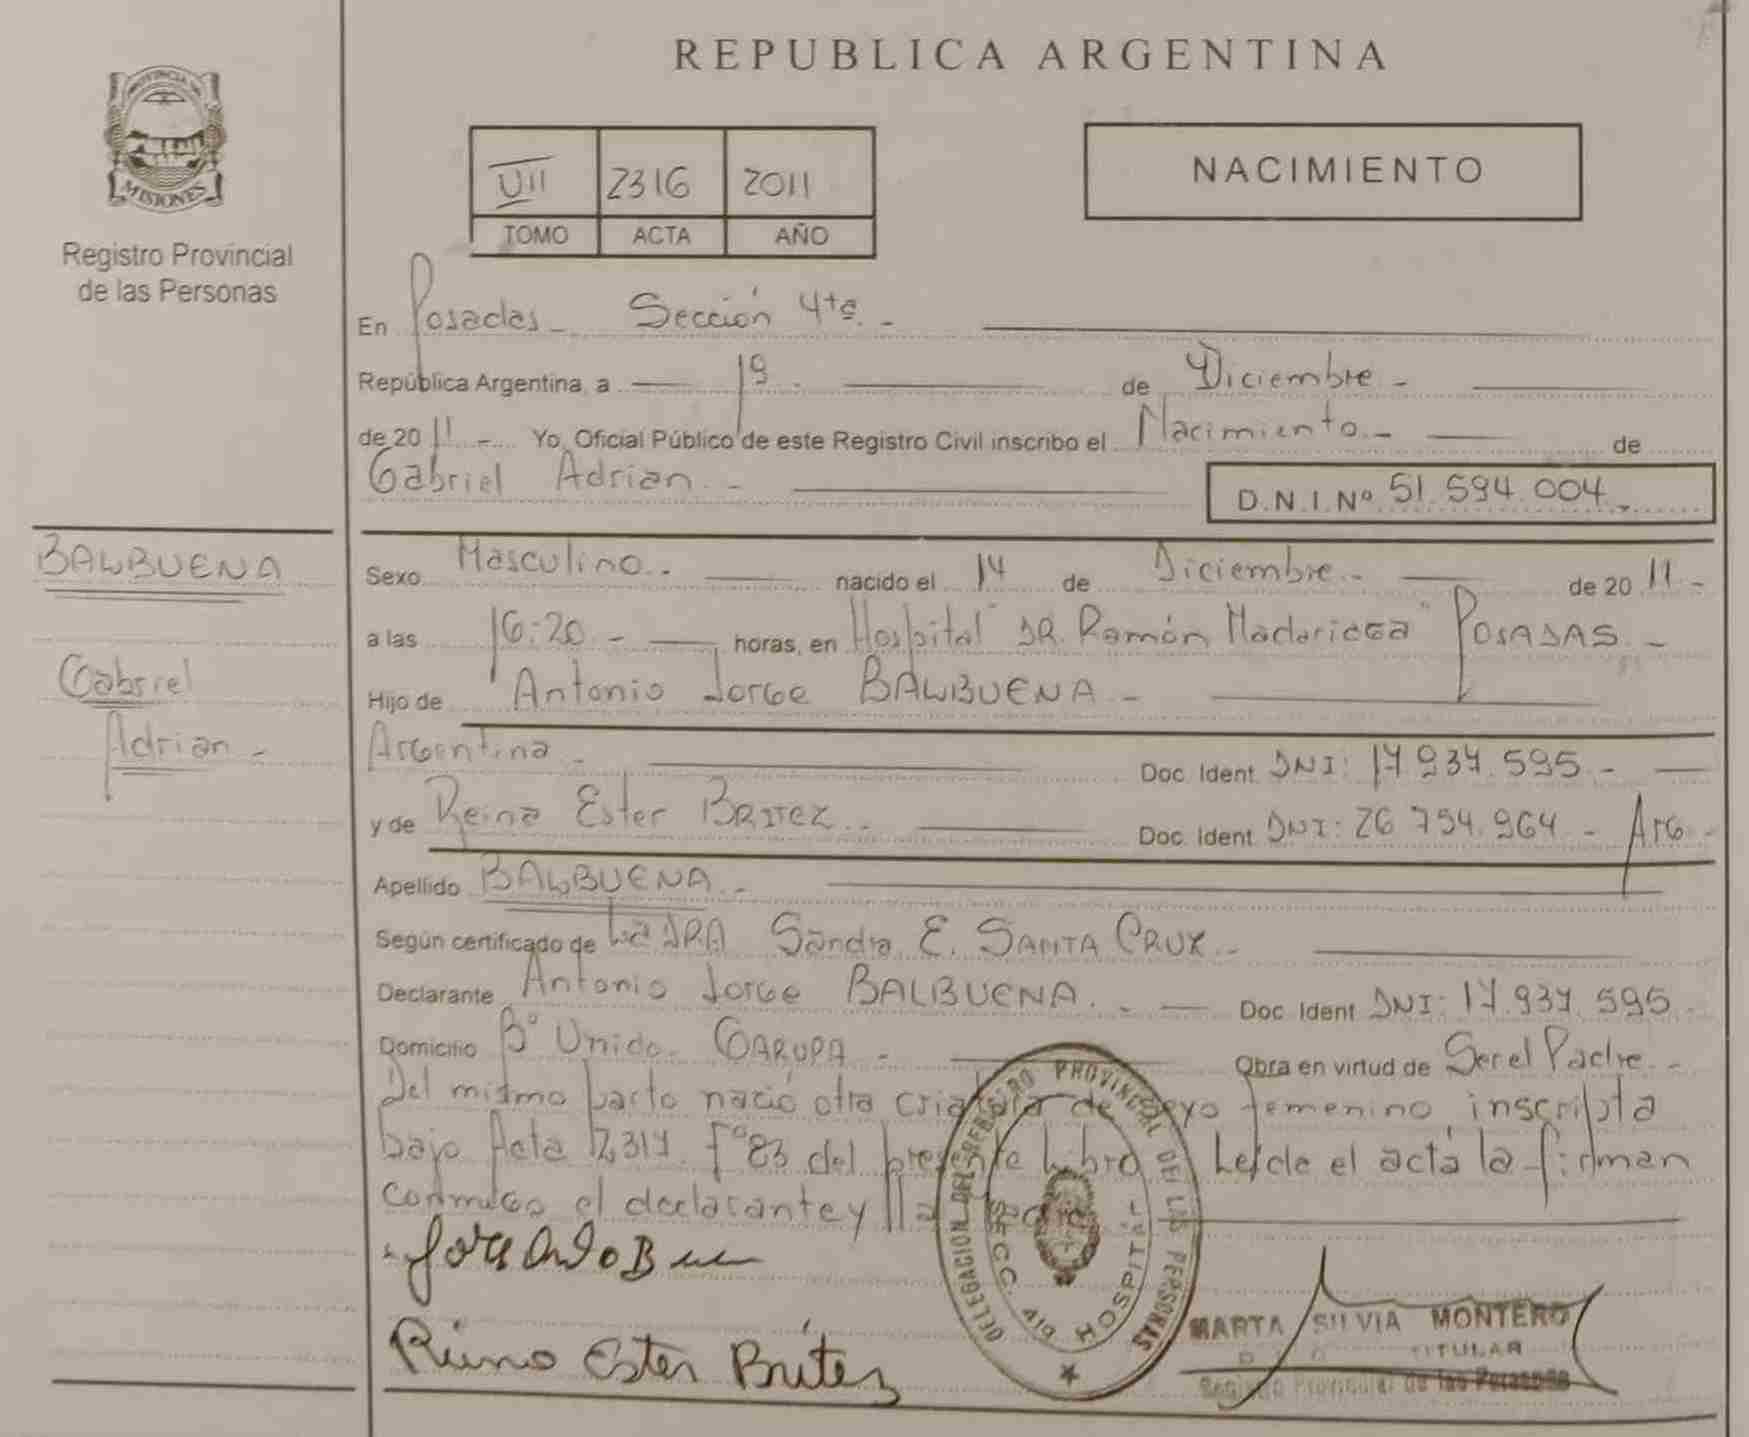 REPUBLICA ARGENTINA
PROVINCIA DE
MISIONES
Registro Provincial
de las Personas
VII 2316 2011
TOMO ACTA AÑO
NACIMIENTO
En Posadas - Sección 4ta. -
República Argentina, a 19 - de Diciembre -
de 2011 - Yo, Oficial Público de este Registro Civil inscribo el Nacimiento - de
Gabriel Adrian. -
D.N.I.Nº 51.594.004. -
BALBUENA
Gabriel
Adrian -
Sexo Masculino. - nacido el 14 de Diciembre - de 2011. -
a las 16:20 - horas, en Hospital "DR. Ramón Madariaga" POSADAS. -
Hijo de Antonio Jorge BALBUENA -
Argentina - Doc. Ident. DNI: 17.937.595 -
y de Reina Ester BRITEZ. - Doc. Ident. DNI: 26.754.964 - Arg -
Apellido BALBUENA. -
Según certificado de La DRA Sandra E. SANTA CRUZ -
Declarante Antonio Jorge BALBUENA. - Doc. Ident. DNI: 17.937.595
Domicilio Bº Unido. GARUPA - Obra en virtud de Ser el Padre. -
Del mismo parto nació otra criatura de sexo femenino, inscripta
bajo Acta 2317 Fº 83 del presente Libro. Leída el acta la firman
conmigo el declarante y
Reina Ester Britez
DELEGACION DEL REGISTRO PROVINCIAL DE LAS PERSONAS
SECC. 4ta HOSPITAL
MARTA SILVIA MONTERO
TITULAR
Registro Provincial de las Personas